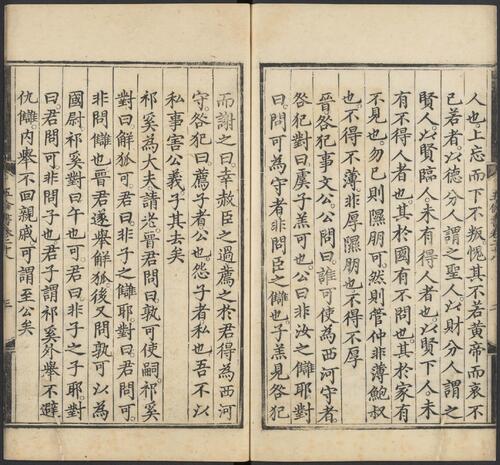 人也上忘而下不叛愧其不若黄帝而哀不
已若者以德分人謂之聖人以財分人謂之
賢人以賢臨人未有得人者也以賢下人未
有不得人者也其於國有不問也其於家有
不見也勿已則隰朋可然則管仲非薄鮑叔
也不得不薄非厚隰朋也不得不厚
晉咎犯事文公公問曰誰可使為西河守者
咎犯對曰虞子羔可也公曰非汝之讎耶對
曰問可為守者非問臣之讎也子羔見咎犯
而謝之曰幸赦臣之過薦之於君得為西河
守咎犯曰薦子者公也怨子者私也吾不以
私事害公義子其去矣
祁奚為大夫請老晉君問曰孰可使嗣祁奚
對曰解狐可君曰非子之讎耶對曰君問可
非問讎也晉君遂舉解狐後又問孰可以為
國尉祁奚對曰午也可君曰非子之子耶對
曰君問可非問子也君子謂祁奚外舉不避
仇讎內舉不回親戚可謂至公矣